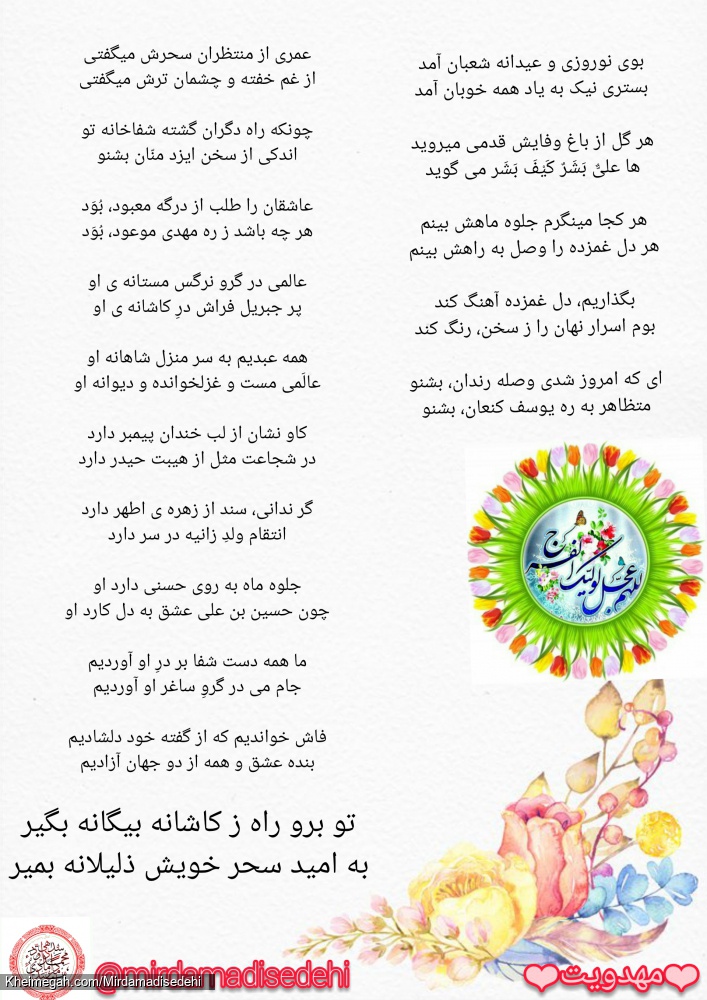 بوی نوروزی و عیدانه شعبان آمد
بستری نیک به یاد همه خوبان آمد
هر گل از باغ وفایش قدمی میروید
ها علیٌّ بَشَرٌ کَیْفَ بَشَر می گوید
هر کجا مینگرم جلوه ماهش بینم
هر دل غمزده را وصل به راهش بینم
بگذاریم، دل غمزده آهنگ کند
بوم اسرار نهان را ز سخن، رنگ کند
ای که امروز شدی وصله رندان، بشنو
متظاهر به ره یوسف کنعان، بشنو
عمری از منتظران سحرش میگفتی
از غم خفته و چشمان ترش میگفتی
چونکه راه دگران گشته شفاخانه تو
اندکی از سخن ایزد منّان بشنو
عاشقان را طلب از درگه معبود، بُوَد
هر چه باشد ز ره مهدی موعود، بُوَد
عالمی در گرو نرگس مستانه ی او
پر جبریل فراش درِ کاشانه ی او
همه عبدیم به سر منزل شاهانه او
عالَمی مست و غزلخوانده و دیوانه او
کاو نشان از لب خندان پیمبر دارد
در شجاعت مثل از هیبت حیدر دارد
گر ندانی، سند از زهره ی اطهر دارد
انتقام ولدِ زانیه در سر دارد
جلوه ماه به روی حسنی دارد او
چون حسین بن علی عشق به دل کارد او
ما همه دست شفا بر درِ او آوردیم
جام می در گروِ ساغر او آوردیم
فاش خواندیم که از گفته خود دلشادیم
بنده عشق و همه از دو جهان آزادیم
تو برو راه ز کاشانه بیگانه بگیر
به امید سحر خویش ذلیلانه بمیر
اللهم عجل لولیک الفرج
@mirdamadisedehi
Kheimegah.com/Mirdamadisedehi
مهدویت